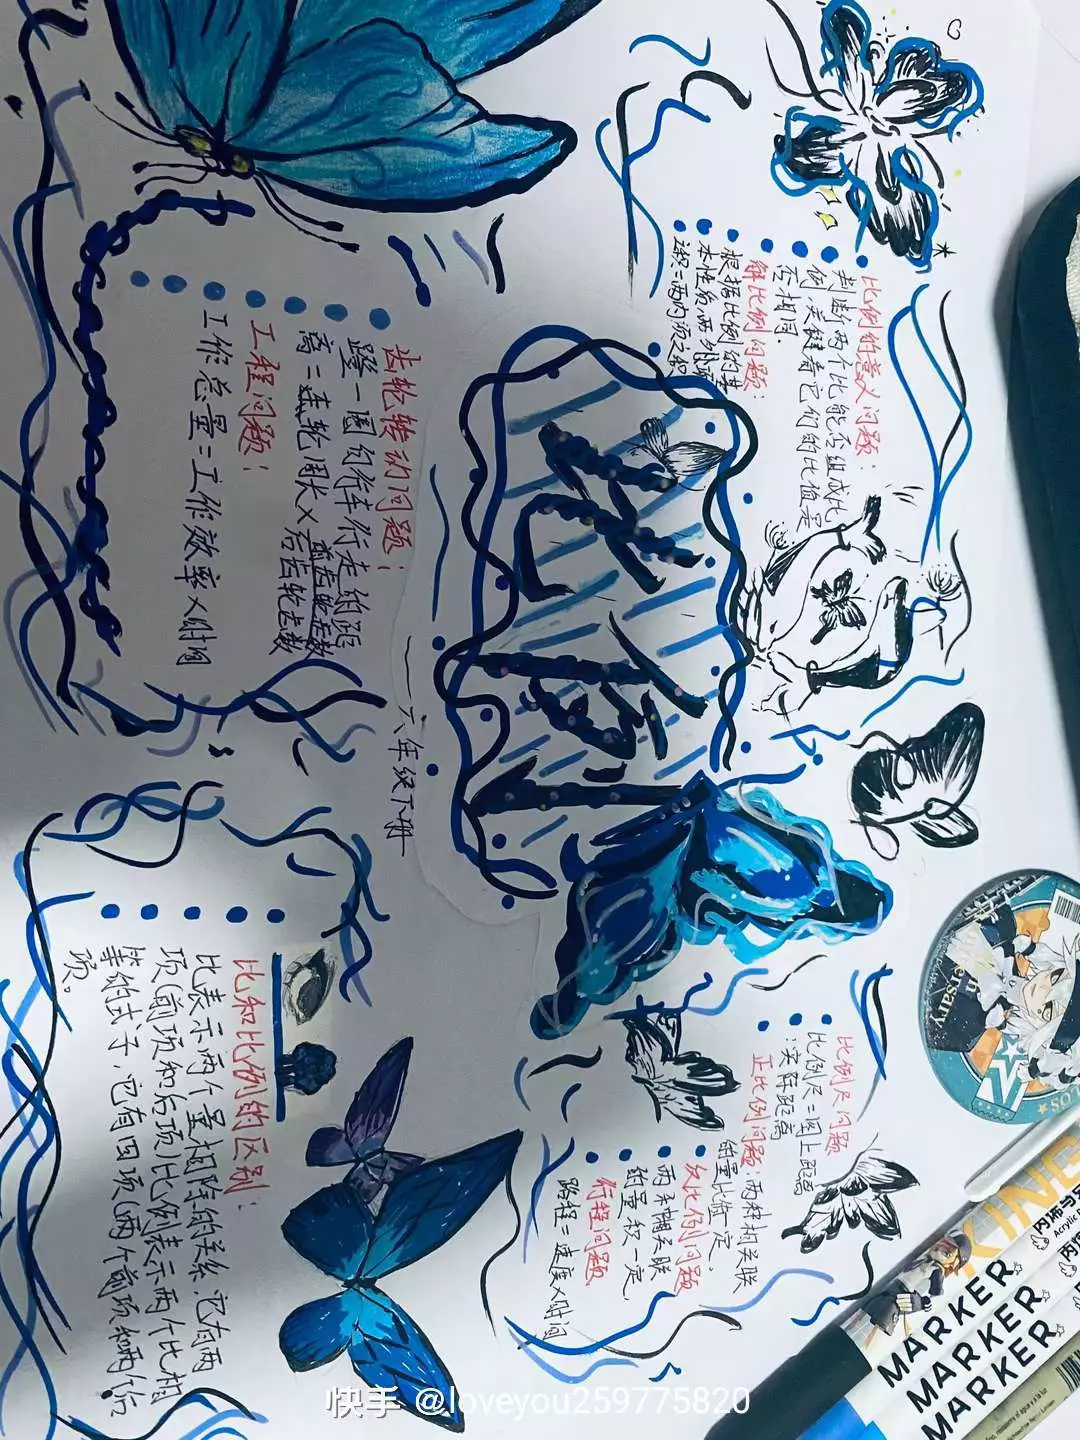 比例
六年级下册
比例的意义问题：
判断两个比能否组成比
例，关键看它们的比值是
否相同．
解比例问题：
根据比例的基
本性质两外项
积＝两内项之积
齿轮转动问题：
蹬一圈自行车行走的距
离＝车轮周长×前齿轮齿数
后齿轮齿数
工程问题：
工作总量＝工作效率×时间
比例尺问题
比例尺＝图上距离
：实际距离
正比例问题：两种相关联
的量比值一定，
反比例问题
两种相关联
的量积一定，
行程问题
路程＝速度×时间
比和比例的区别：
比表示两个量相除的关系，它有两
项(前项和后项)比例表示两个比相
等的式子，它有四项(两个前项和两个后
项)。
MARKER
MARKER
MARKER
Acrylic
快手 @loveyou259775820